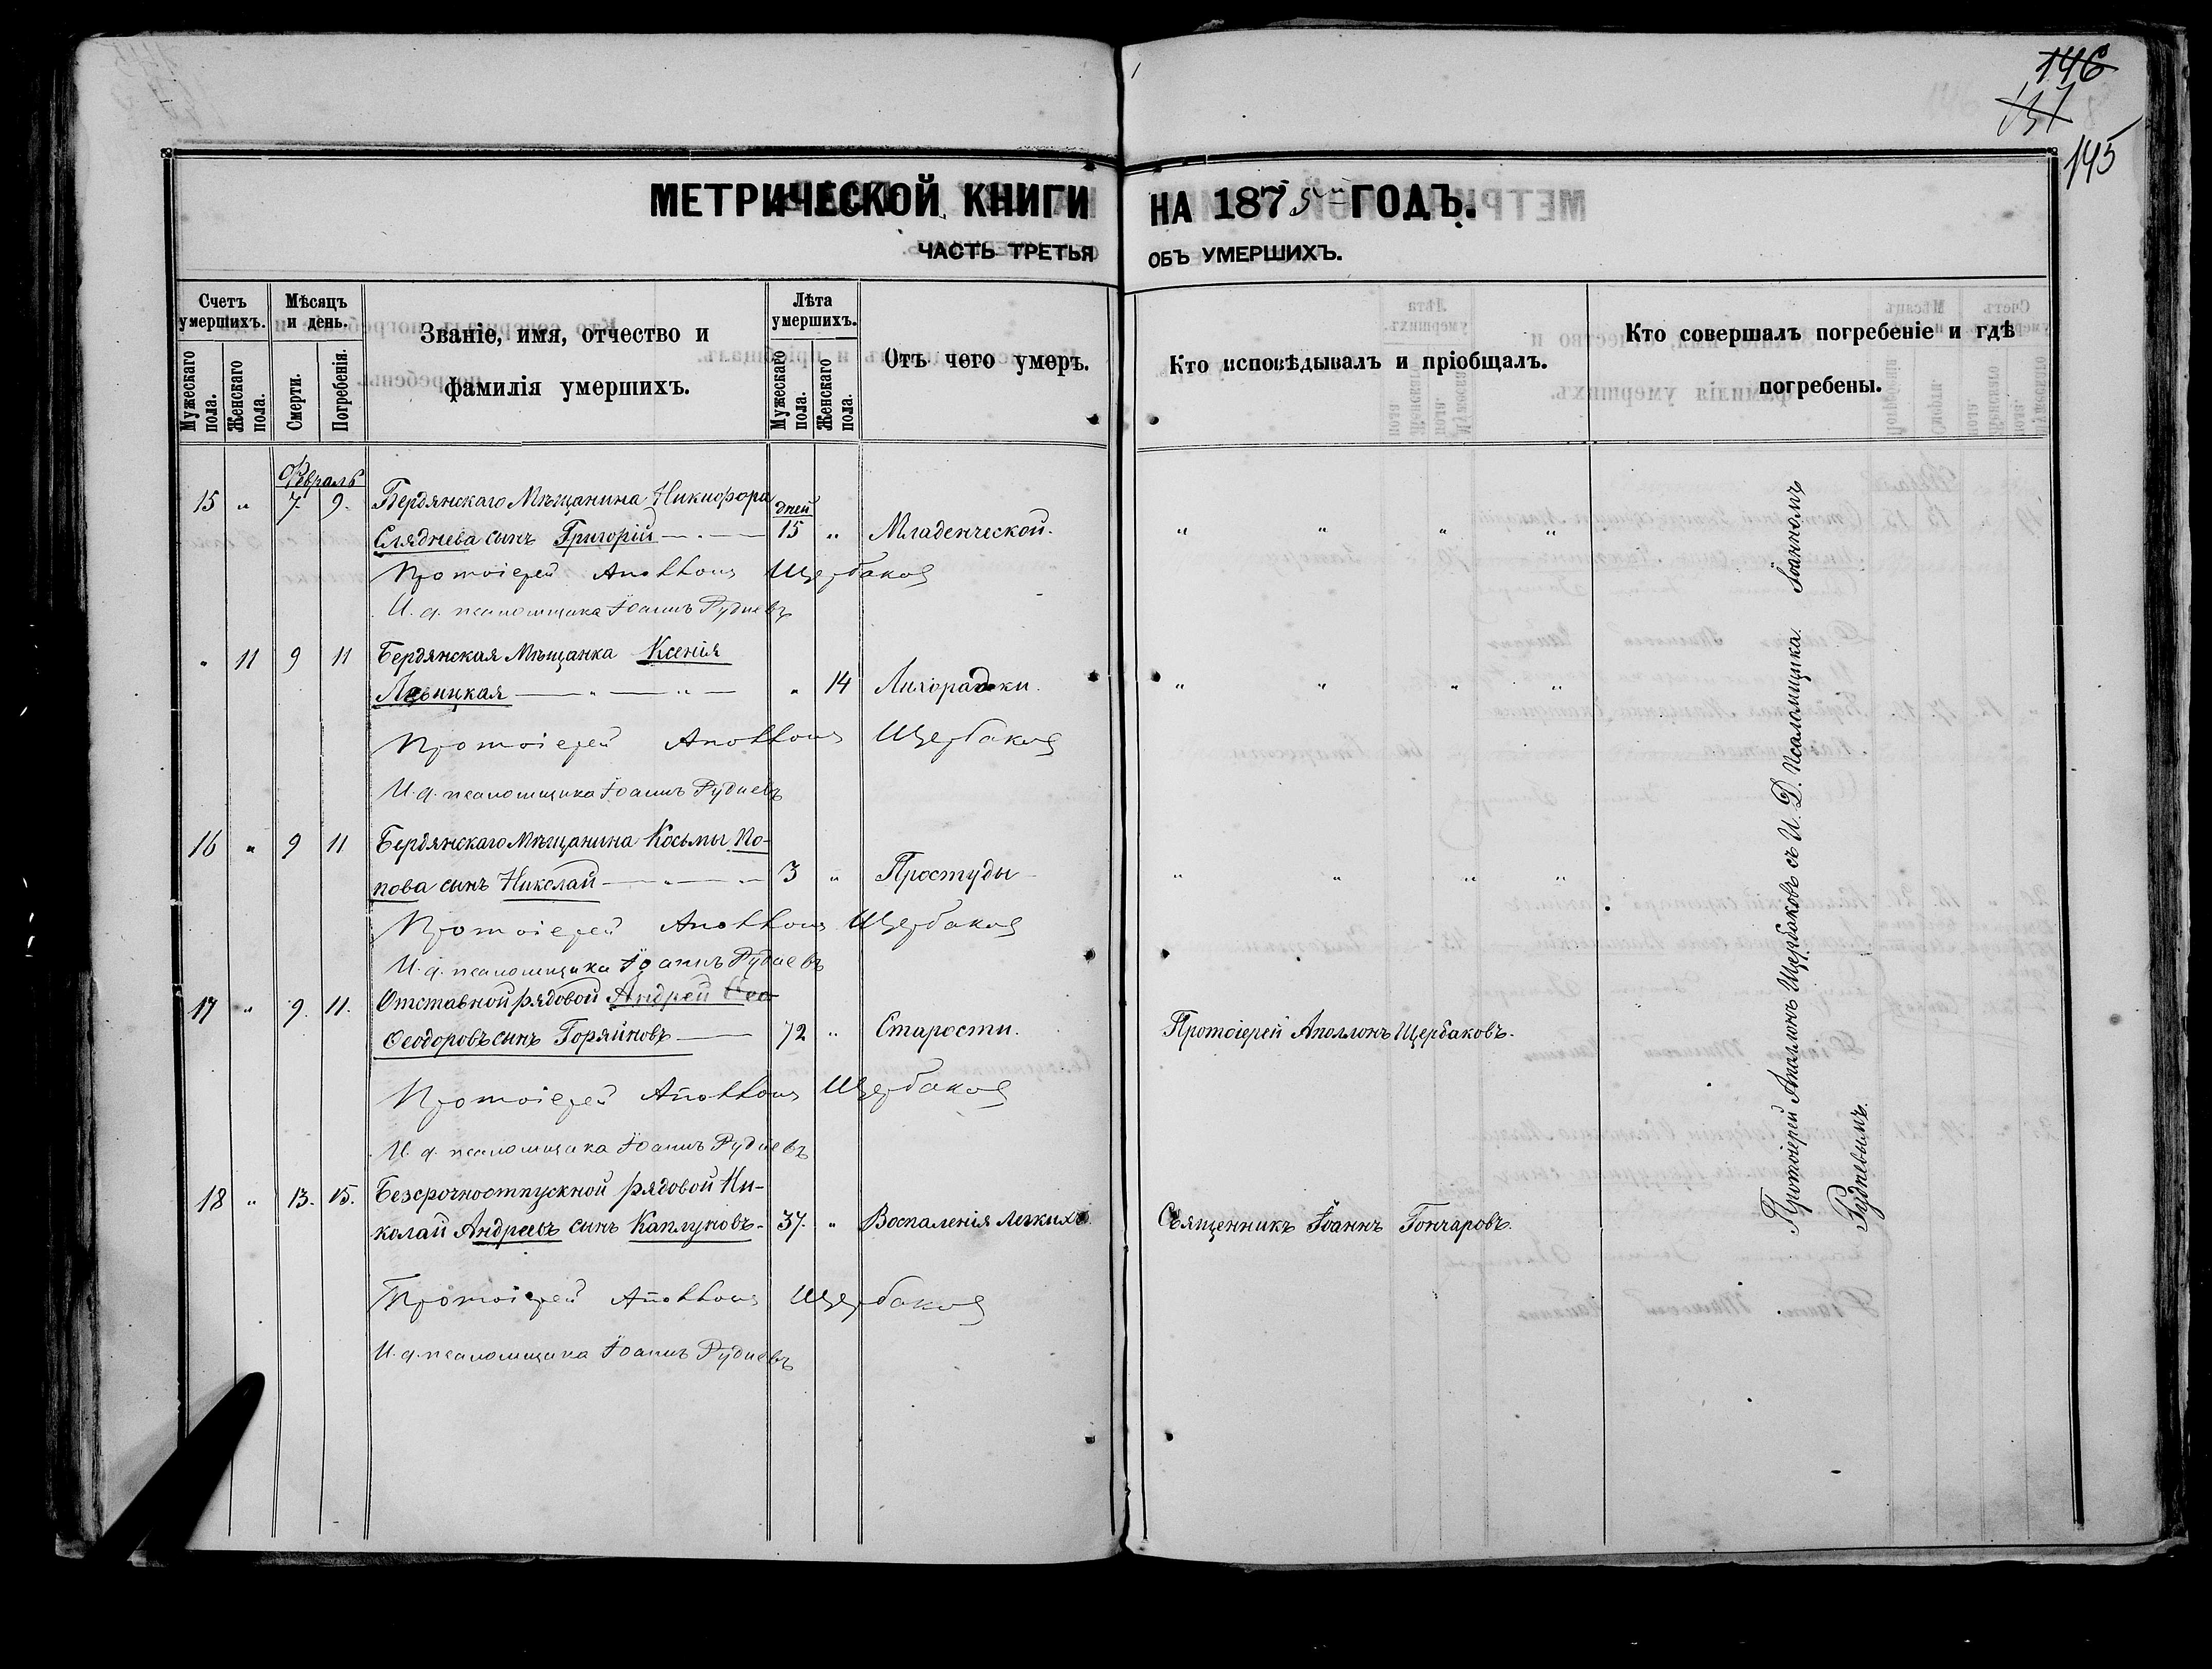 146
137
145
МЕТРИЧЕСКОЙ КНИГИ НА 1875й ГОДЪ.
ЧАСТЬ ТРЕТЬЯ ОБЪ УМЕРШИХЪ.
Счетъ умершихъ.
Мужескаго пола.
Женскаго пола.
Мѣсяцъ и день.
Смерти.
Погребенія.
Званіе, имя, отчество и
фамилія умершихъ.
Лѣта умершихъ.
Мужескаго пола.
Женскаго пола.
Отъ чего умеръ.
Кто исповѣдывалъ и пріобщалъ.
Кто совершалъ погребеніе и гдѣ
погребены.
Февраль
15 „ 7. 9. Бердянскаго Мѣщанина Никифора дней
Сляднева сынъ Григорій 15 „ Младенческой. „ „ „ „
Протоіерей Аполлонъ Щербаковъ
И. д. псаломщика Іоаннъ Рудневъ
„ 11 9 11 Бердянская Мѣщанка Ксенія
Левицкая „ „ „ 14 Лихорадки. „ „ „ „
Протоіерей Аполлонъ Щербаковъ
И. д. псаломщика Іоаннъ Рудневъ
16 „ 9 11 Бердянскаго Мѣщанина Косьмы По-
пова сынъ Николай „ 3 „ Простуды „ „ „ „
Протоіерей Аполлонъ Щербаковъ
И. д. псаломщика Іоаннъ Рудневъ
17 „ 9. 11. Отставной рядовой Андрей Ѳео
Ѳеодоровъ сынъ Горяйновъ 72 „ Старости. Протоіерей Аполлонъ Щербаковъ.
Протоіерей Аполлонъ Щербаковъ
И. д. псаломщика Іоаннъ Рудневъ
18 „ 13. 15. Безсрочноотпускной рядовой Ни-
колай Андреевъ сынъ Каплуновъ. 37. „ Воспаленія легкихъ. Священникъ Іоаннъ Гончаровъ.
Протоіерей Аполлонъ Щербаковъ
И. д. псаломщика Іоаннъ Рудневъ
Протоіерей Аполлонъ Щербаковъ съ И. Д. Псаломщика Іоанномъ
Рудневымъ.